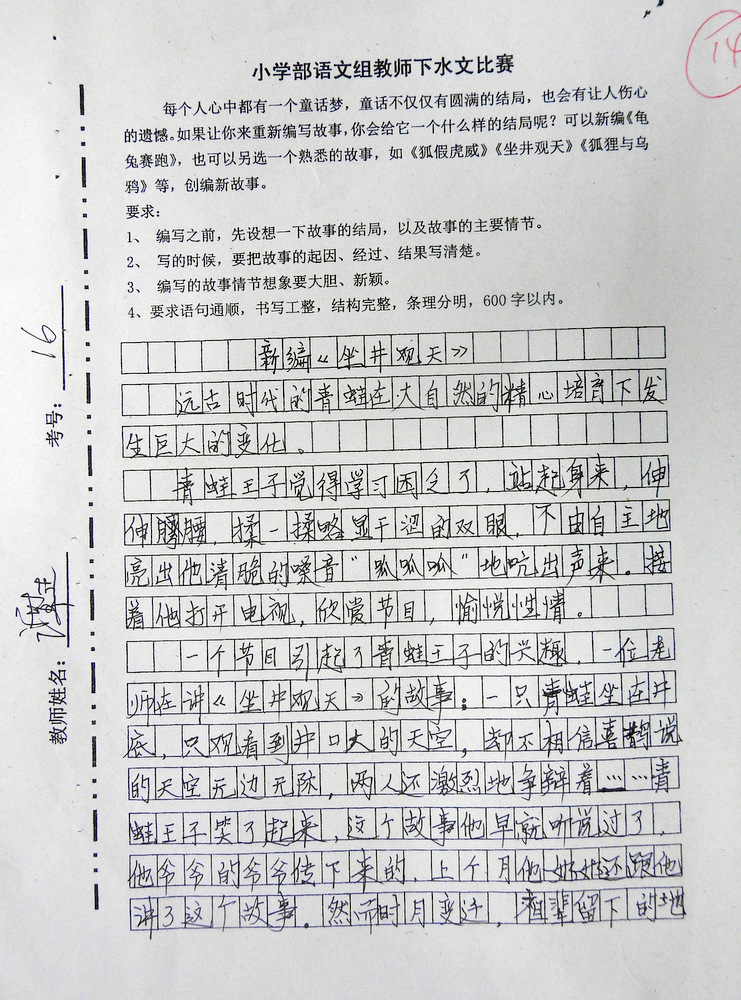 14
小学部语文组教师下水文比赛
每个人心中都有一个童话梦，童话不仅仅有圆满的结局，也会有让人伤心
的遗憾。如果让你来重新编写故事，你会给它一个什么样的结局呢？可以新编《龟
兔赛跑》，也可以另选一个熟悉的故事，如《狐假虎威》《坐井观天》《狐狸与乌
鸦》等，创编新故事。
要求：
1、 编写之前，先设想一下故事的结局，以及故事的主要情节。
2、 写的时候，要把故事的起因、经过、结果写清楚。
3、 编写的故事情节想象要大胆、新颖。
4、要求语句通顺，书写工整，结构完整，条理分明，600 字以内。
新编《坐井观天》
远古时代的青蛙在大自然的精心培育下发
生巨大的变化。
青蛙王子觉得学习困乏了，站起身来，伸
伸腰，揉一揉略显干涩的双眼，不由自主地
亮出他清脆的嗓音“呱呱呱”地吭出声来。接
着他打开电视，欣赏节目，愉悦性情。
一个节目引起了青蛙王子的兴趣，一位老
师在讲《坐井观天》的故事：一只青蛙坐在井
底，只观看到井口大的天空，却不相信喜鹊说
的天空无边无际，两人还激烈地争辩着……青
蛙王子笑了起来，这个故事他早就听说过了，
他爷爷的爷爷传下来的，上个月他妈妈还跟他
讲了这个故事。然而时月变迁，祖辈留下的地
考号：16
教师姓名：